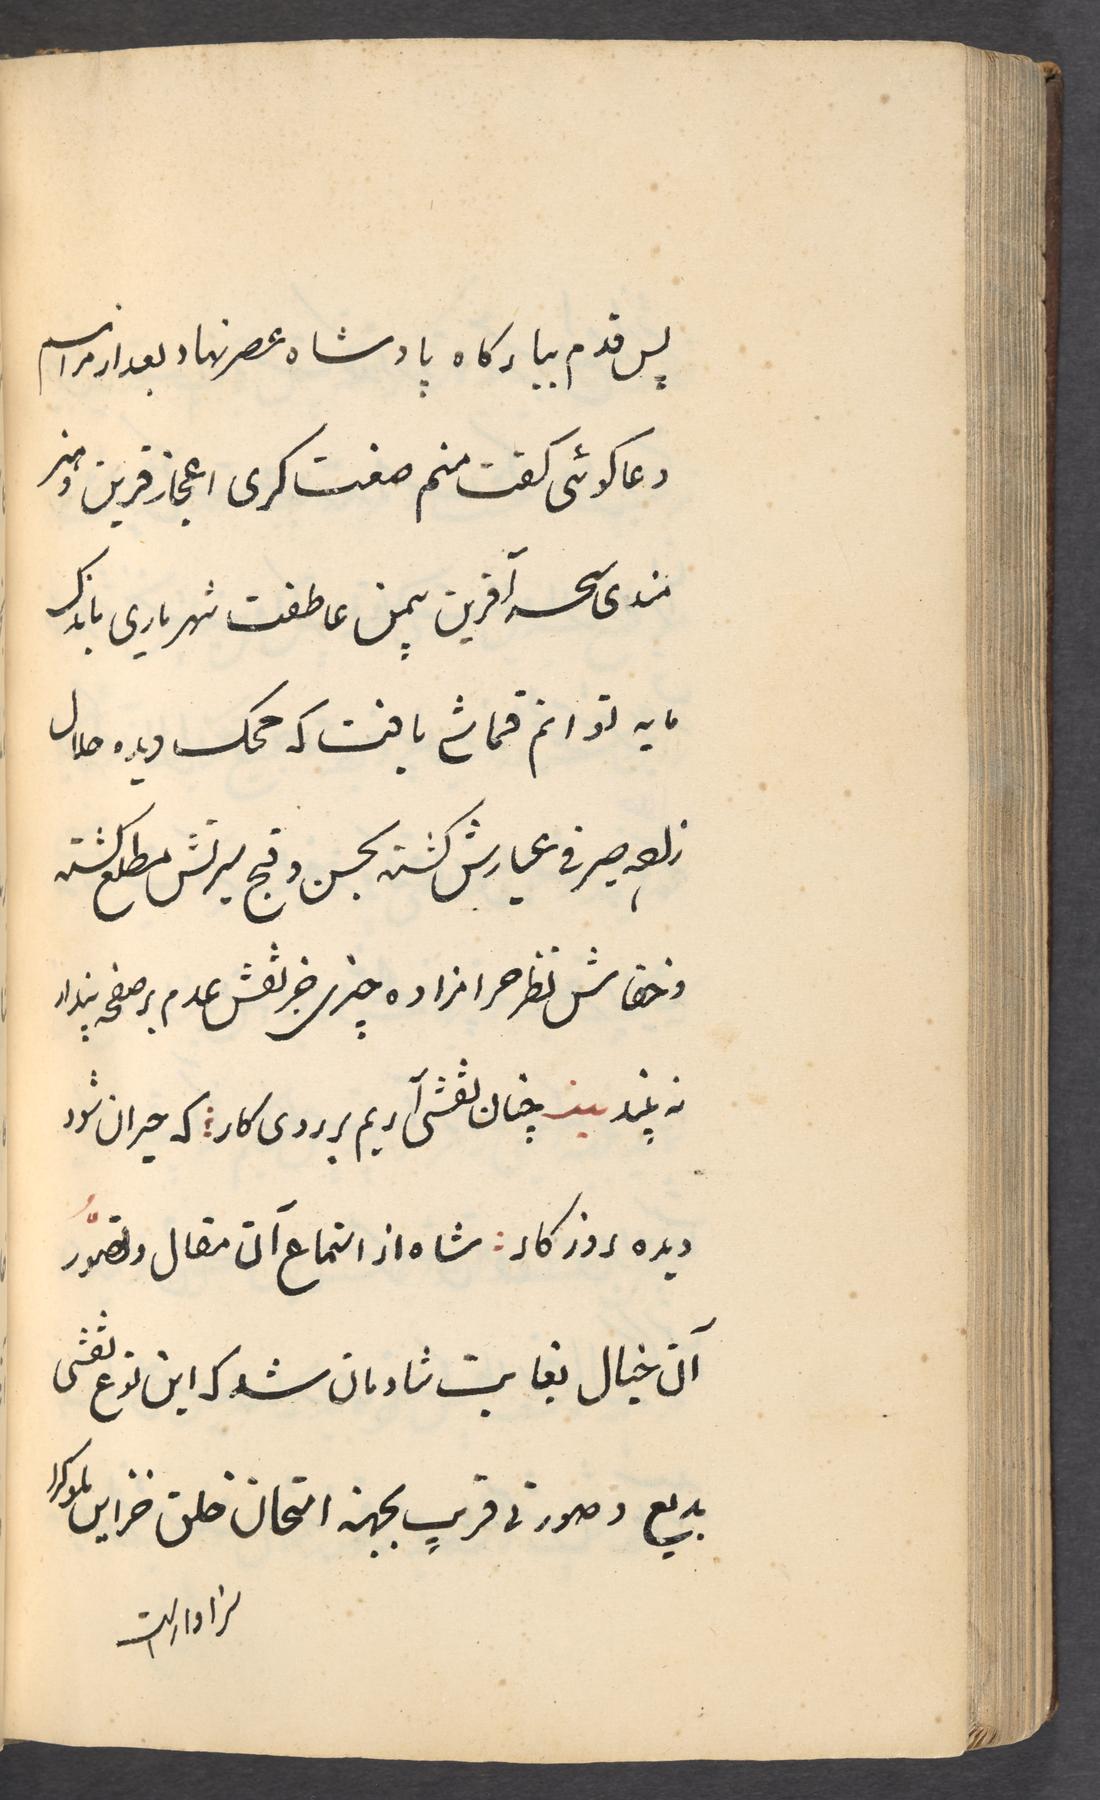 پس قدم ببارکاه پادشاه عصر نهاد بعد از مراسم
دعا کوئی کفت منم صنعت کری اعجاز قرین و هنر
مندی سحر آفرین بیمن عاطفت شهریاری باندک
مایه توانم قماشی بافت که محک دیده حلال
زاده صیرفی عیارش کشته بحسن و قبح سرتش مطلع کشته
و خفاش نظر حرامزاده چیزی جز نقش عدم بر صفحه پندار
نه بیند بیت چنان نقشی آریم بر روی کار که حیران شود
دیده روزکار شاه از استماع آن مقال و تصوّر
آن خیال بغایت شادمان شد که این نوع نقشی
بدیع و صورتی فریب بجهة امتحان خلق خزاین ملوک را
سزاوار است